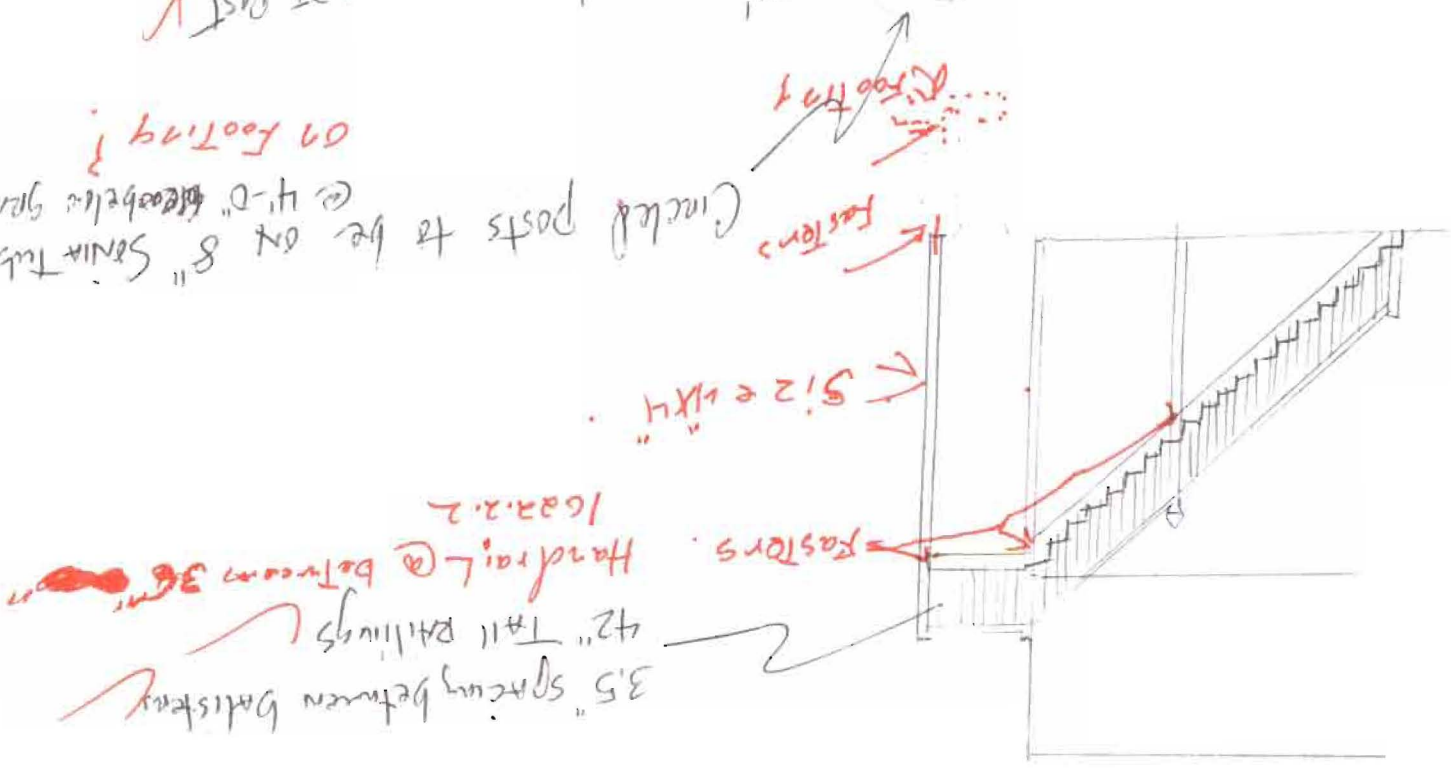 3.5" spacing between balisters
42" TAll RAilings
Handrail @ between
1022.2.2
Fastors
Size 4"x4"
Fastors
Circled posts to be ON 8" SONIA Tub
@ 4'-0" below gra
on Footing ?
Footing
Post